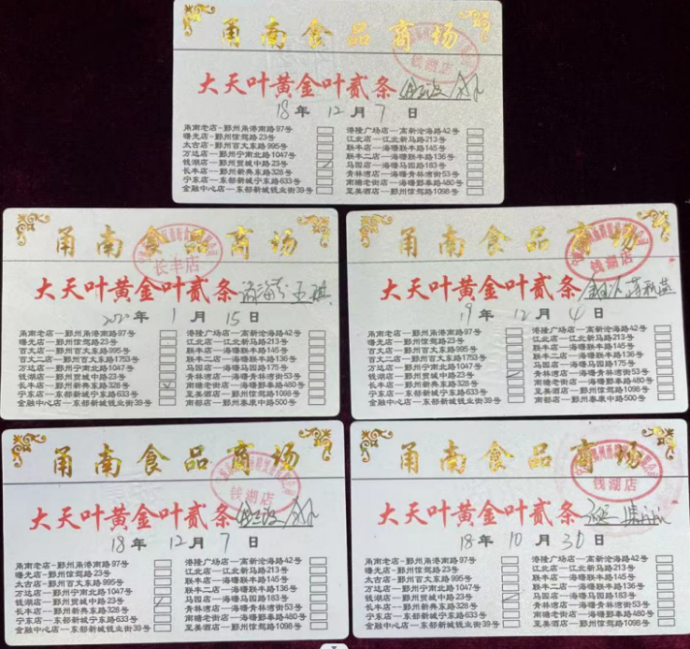 甬南食品商场
钱湖店
大天叶黄金叶贰条
18年 12月 7日
甬南老店-鄞州甬港南路97号
曙光店-鄞州惊驾路23号
太古店-鄞州百丈东路995号
万达店-鄞州宁南北路1047号
钱湖店-鄞州贸城中路23号
长丰店-鄞州新典东路328号
宁东店-东部新城宁东路633号
金融中心店-东部新城钱业街39号
港隆广场店-高新沧海路42号
江北店-江北新马路213号
联丰店-海曙联丰路145号
联丰二店-海曙联丰路136号
马园店-海曙马园路183号
青林湾店-海曙青林湾街53号
南塘老街店-海曙鄞奉路480号
至美酒店-鄞州惊驾路1098号
甬南食品商场
长丰店
大天叶黄金叶贰条
年 1月 15日
甬南老店-鄞州甬港南路97号
曙光店-鄞州惊驾路23号
百丈店-鄞州百丈东路995号
百丈二店-鄞州百丈东路1753号
万达店-鄞州宁南北路1047号
钱湖店-鄞州贸城中路23号
长丰店-鄞州新典东路328号
宁东店-东部新城宁东路633号
金融中心店-东部新城钱业街39号
港隆广场店-高新沧海路42号
江北店-江北新马路213号
联丰店-海曙联丰路145号
联丰二店-海曙联丰路136号
马园店-海曙马园路175号
青林湾店-海曙青林湾街53号
南塘老街店-海曙鄞奉路480号
南部店-鄞州泰康中路500号
甬南食品商场
钱湖店
大天叶黄金叶贰条
19年 12月 4日
甬南老店-鄞州甬港南路97号
曙光店-鄞州惊驾路23号
百丈店-鄞州百丈东路995号
百丈二店-鄞州百丈东路1753号
万达店-鄞州宁南北路1047号
钱湖店-鄞州贸城中路23号
长丰店-鄞州新典东路328号
宁东店-东部新城宁东路633号
金融中心店-东部新城钱业街39号
港隆广场店-高新沧海路42号
江北店-江北新马路213号
联丰店-海曙联丰路145号
联丰二店-海曙联丰路136号
马园店-海曙马园路175号
青林湾店-海曙青林湾街53号
南塘老街店-海曙鄞奉路480号
至美酒店-鄞州惊驾路1098号
南部店-鄞州泰康中路500号
甬南食品商场
钱湖店
大天叶黄金叶贰条
18年 12月 7日
甬南老店-鄞州甬港南路97号
曙光店-鄞州惊驾路23号
太古店-鄞州百丈东路995号
万达店-鄞州宁南北路1047号
钱湖店-鄞州贸城中路23号
长丰店-鄞州新典东路328号
宁东店-东部新城宁东路633号
金融中心店-东部新城钱业街39号
港隆广场店-高新沧海路42号
江北店-江北新马路213号
联丰店-海曙联丰路145号
联丰二店-海曙联丰路136号
马园店-海曙马园路183号
青林湾店-海曙青林湾街53号
南塘老街店-海曙鄞奉路480号
至美酒店-鄞州惊驾路1098号
甬南食品商场
钱湖店
大天叶黄金叶贰条
18年 10月 30日
甬南老店-鄞州甬港南路97号
曙光店-鄞州惊驾路23号
太古店-鄞州百丈东路995号
万达店-鄞州宁南北路1047号
钱湖店-鄞州贸城中路23号
长丰店-鄞州新典东路328号
宁东店-东部新城宁东路633号
金融中心店-东部新城钱业街39号
港隆广场店-高新沧海路42号
江北店-江北新马路213号
联丰店-海曙联丰路145号
联丰二店-海曙联丰路136号
马园店-海曙马园路183号
青林湾店-海曙青林湾街53号
南塘老街店-海曙鄞奉路480号
至美酒店-鄞州惊驾路1098号